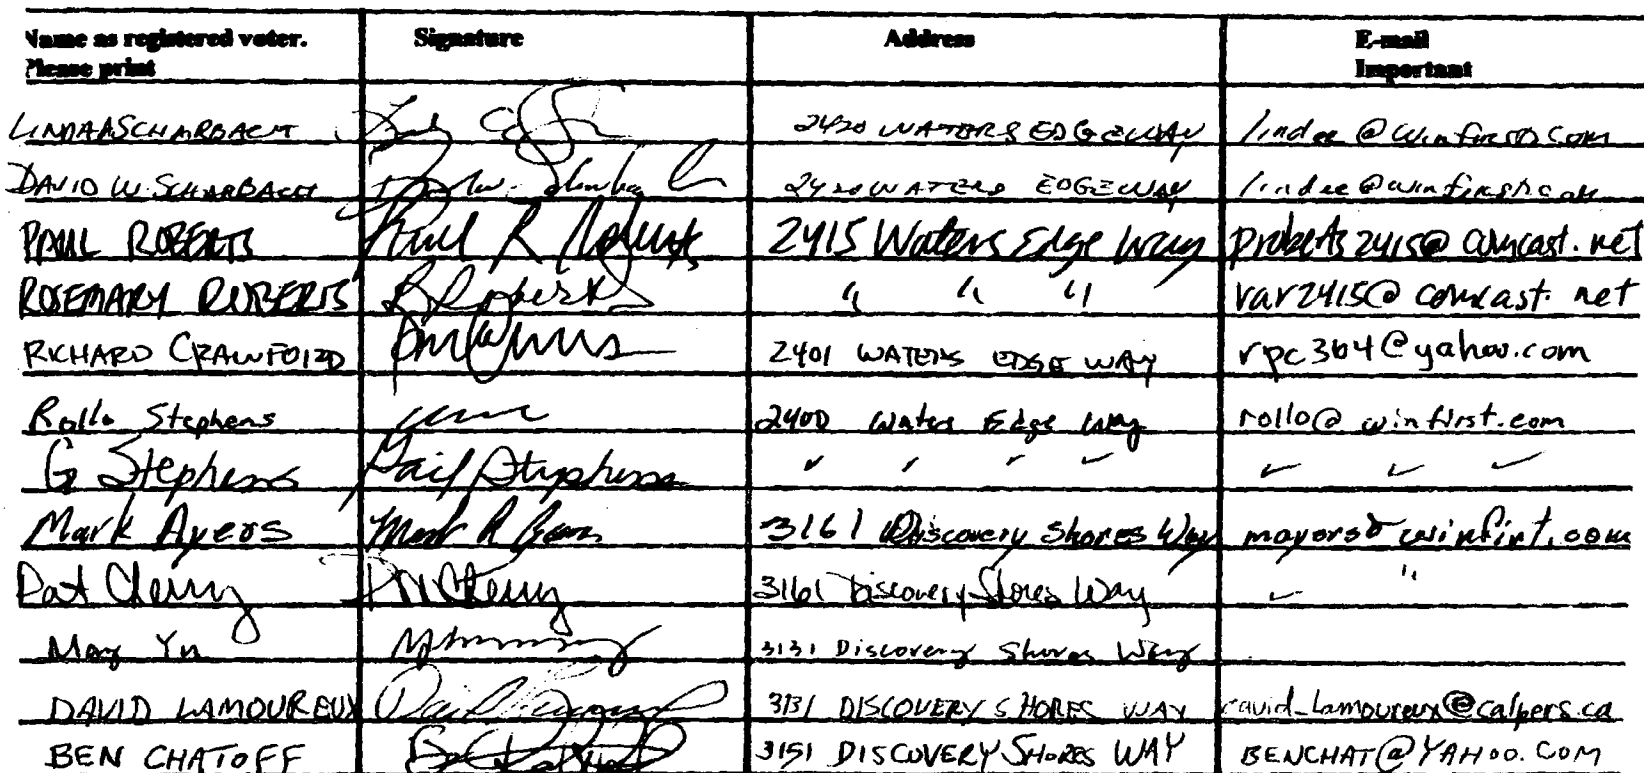 Name as registered voter. Signature Address E-mail
Please print Important
LINDA A SCHARBACH 2420 WATERS EDGE WAY lindee@winfirst.com
DAVID W. SCHARBACH 2420 WATERS EDGE WAY lindee@winfirst.com
PAUL ROBERTS Paul R Roberts 2415 Waters Edge Way proberts2415@comcast.net
ROSEMARY ROBERTS R Roberts " " " rar2415@comcast.net
RICHARD CRAWFORD 2401 WATERS EDGE WAY rpc364@yahoo.com
Rollo Stephens 2400 Water Edge Way rollo@winfirst.com
G Stephens Gail Stephens
Mark Ayers Mark R Ayers 3161 Discovery Shores Way mayers@winfirt.com
Pat Cherry Cherry 3161 Discovery Shores Way "
May Yu 3131 Discovery Shores Way
DAVID LAMOUREUX 3131 DISCOVERY SHORES WAY david_Lamoureux@calpers.ca
BEN CHATOFF 3151 DISCOVERY SHORES WAY BENCHAT@YAHOO.COM